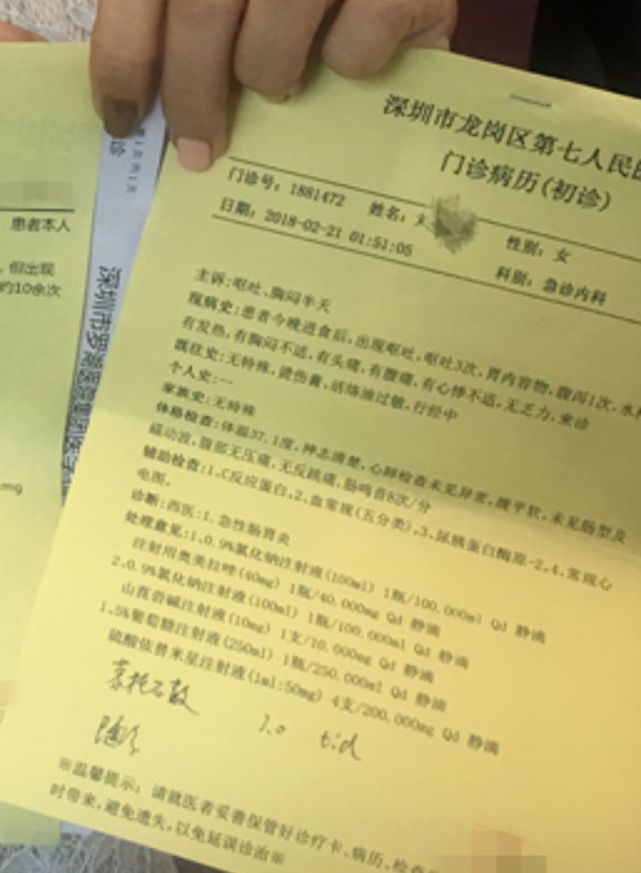 患者本人
，但出现
约10余次
mg
深圳市罗湖医院集团医
深圳市龙岗区第七人民医
门诊病历(初诊)
门诊号: 1881472 姓名: 性别: 女
日期: 2018-02-21 01:51:05 科别: 急诊内科
主诉:呕吐,胸闷半天
现病史:患者今晚进食后,出现呕吐,呕吐3次,胃内容物,腹泻1次,水样
有发热,有胸闷不适,有头痛,有腹痛,有心悸不适,无乏力,来诊
既往史:无特殊,烫伤膏,活络油过敏,行经中
个人史:一
家族史:无特殊
体格检查:体温37.1度,神志清楚,心肺检查未见异常,腹平软,未见肠型及
蠕动波,腹部无压痛,无反跳痛,肠鸣音8次/分
辅助检查:1,C反应蛋白,2,血常规(五分类),3,尿胰蛋白酶原-2,4,常规心
电图,
诊断:西医:1.急性肠胃炎
处理意见:1,0.9%氯化钠注射液(100ml) 1瓶/100.000ml Qd 静滴
注射用奥美拉唑(40mg) 1瓶/40.000mg Qd 静滴
2,0.9%氯化钠注射液(100ml) 1瓶/100.000ml Qd 静滴
山莨菪碱注射液(10mg) 1支/10.000mg Qd 静滴
1,5%葡萄糖注射液(250ml) 1瓶/250.000ml Qd 静滴
硫酸依替米星注射液(1ml:50mg) 4支/200.000mg Qd 静滴
蒙托石散 1.0 tid
随诊
※温馨提示: 请就医者妥善保管好诊疗卡、病历、检查
时带来,避免遗失,以免延误诊治※